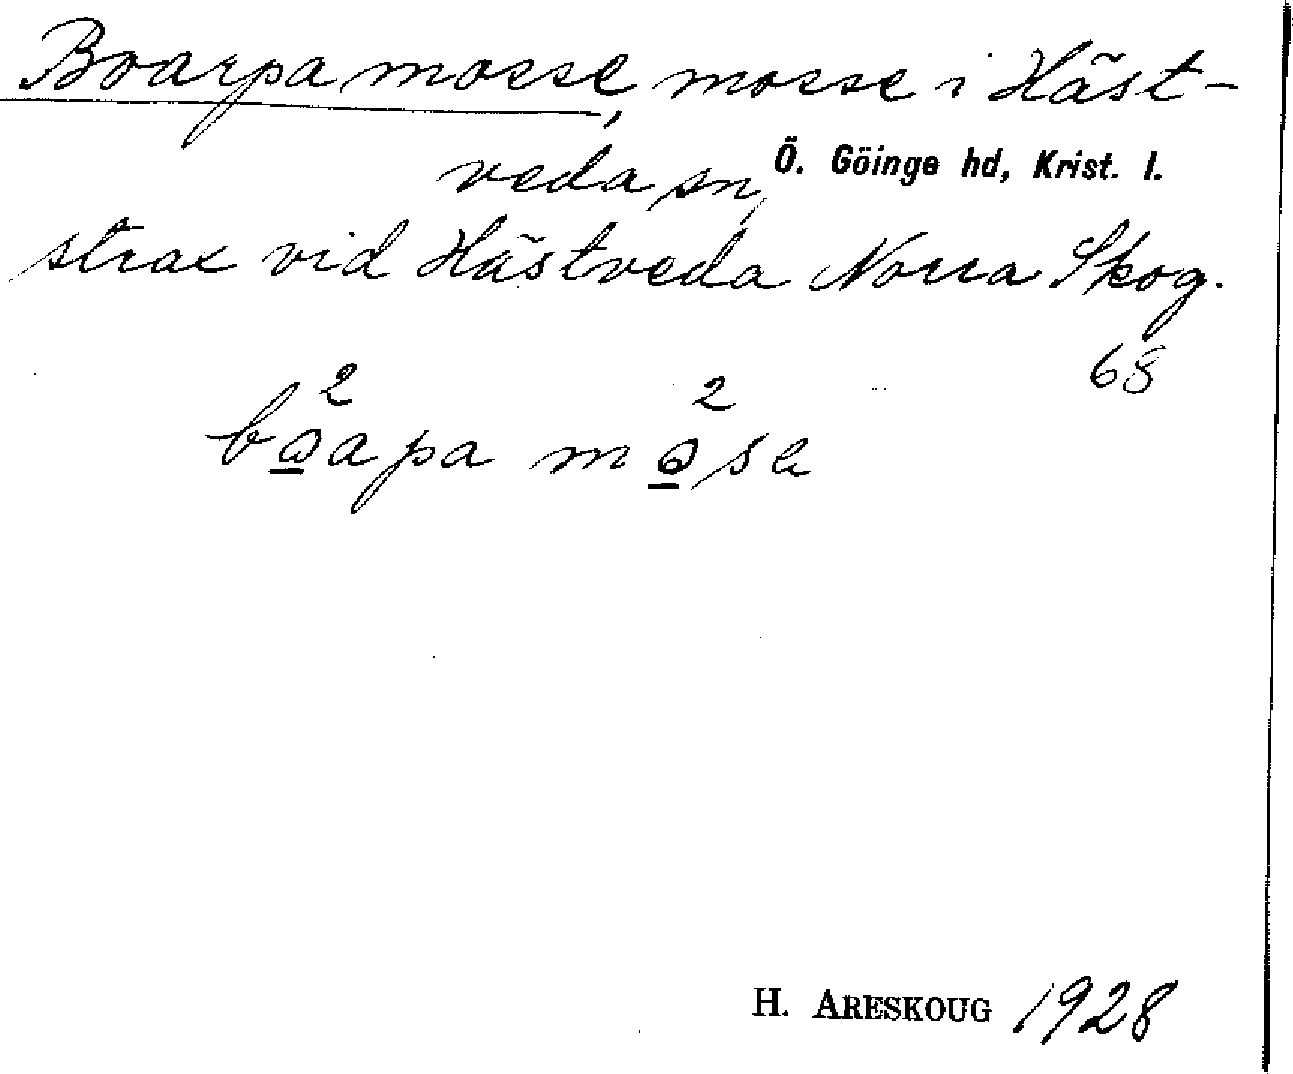 Boarpa mosse, mosse i Häst-
veda sn, Ö. Göinge hd, Krist. l.
strax vid Hästveda Norra Skog.
68
2 2
boapa mose
H. ARESKOUG 1928